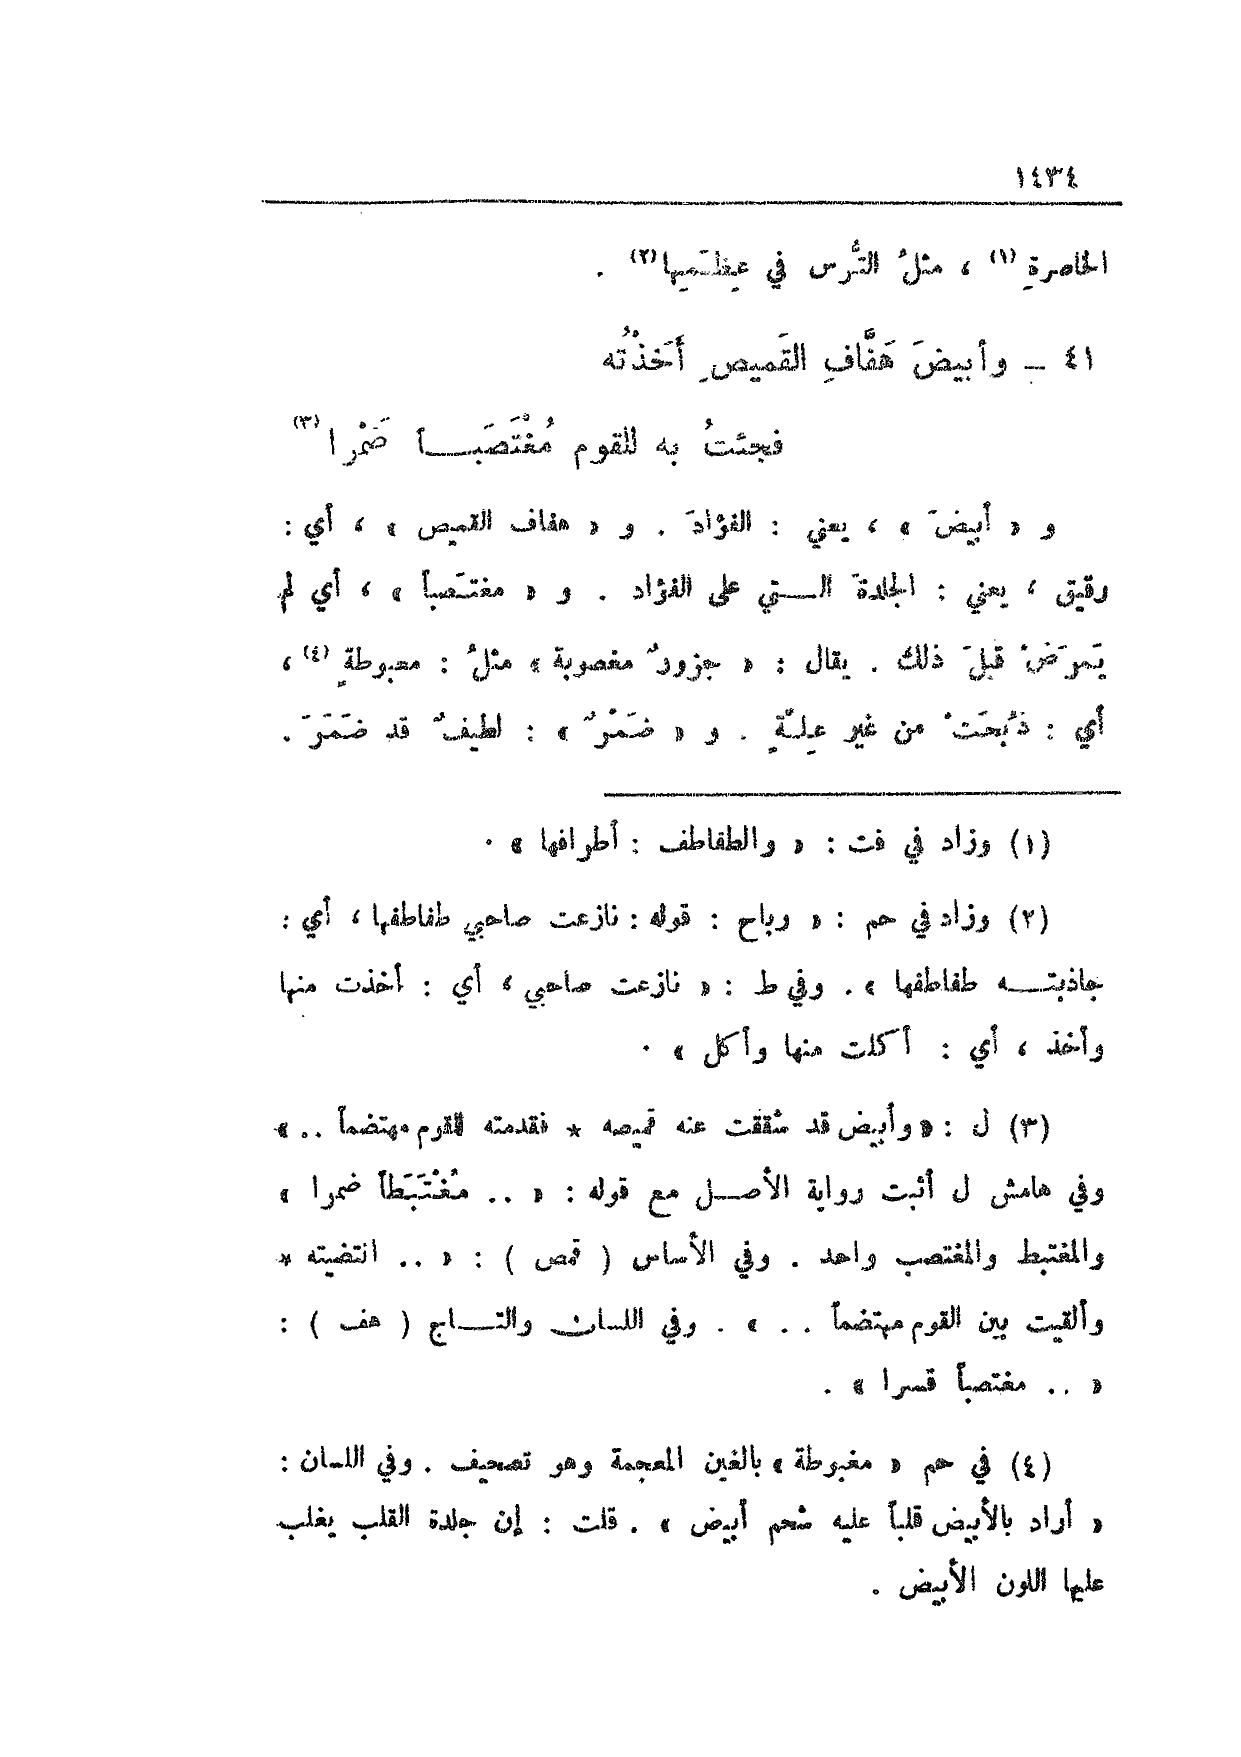 ١٤٣٤
الخاصرةِ (١) ، مثلُ التُّرس في عِظَمِها(٢) .
٤١ ـ وأبيضَ هَفَّافِ القَميصِ أَخَذْتُه
فجئتُ به للقوم مُغْتَصَبـــاً ضَمْرا(٣)
و « أبيضَ » ، يعني : الفؤادَ . و « هفاف القميص » ، أي :
رقيق ، يعني : الجلدةَ الـــتي على الفؤاد . و « مغتَصباً » ، أي لم
يَمرَضْ قبلَ ذلك . يقال : « جزورٌ مغصوبة » مثلُ : معبوطةٍ (٤) ،
أي : ذُبِحَتْ من غير عِلَّةٍ . و « ضَمْرٌ » : لطيفٌ قد ضَمَرَ .
(١) وزاد في فت : « والطفاطف : أطرافها » .
(٢) وزاد في حم : « رباح : قوله : نازعت صاحبي طفاطفها ، أي :
جاذبتـــه طفاطفها » . وفي ط : « نازعت صاحبي ، أي : أخذت منها
وأخذ ، أي : أكلت منها وأكل » .
(٣) ل : « وأبيض قد شققت عنه قميصه * فقدمته للقوم مهتضماً .. »
وفي هامش ل أثبت رواية الأصـــل مع قوله : « .. مُغْتَبَطاً ضمرا »
والمغتبط والمغتصب واحد . وفي الأساس ( قمص ) : « .. انتضيته *
وألقيت بين القوم مهتضماً .. » . وفي اللسان والتـــاج ( هف ) :
« .. مغتصباً قسرا » .
(٤) في حم « مغبوطة » بالغين المعجمة وهو تصحيف . وفي اللسان :
« أراد بالأبيض قلباً عليه شحم أبيض » . قلت : إن جلدة القلب يغلب
عليها اللون الأبيض .